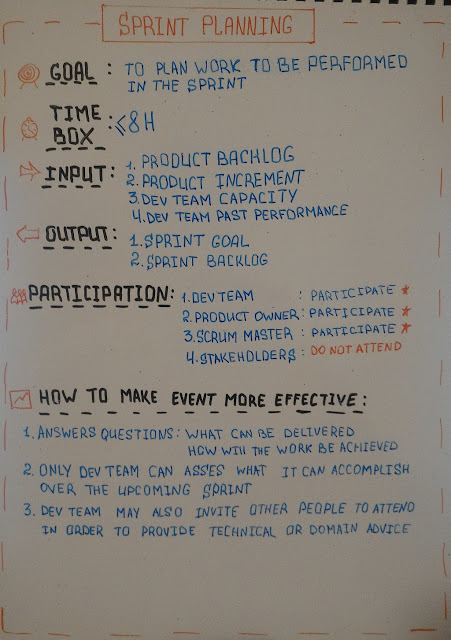 SPRINT PLANNING
GOAL : TO PLAN WORK TO BE PERFORMED
IN THE SPRINT
TIME
BOX : ≤8H
INPUT: 1. PRODUCT BACKLOG
2. PRODUCT INCREMENT
3. DEV TEAM CAPACITY
4. DEV TEAM PAST PERFORMANCE
OUTPUT: 1. SPRINT GOAL
2. SPRINT BACKLOG
PARTICIPATION: 1. DEV TEAM : PARTICIPATE *
2. PRODUCT OWNER: PARTICIPATE *
3. SCRUM MASTER : PARTICIPATE *
4. STAKEHOLDERS : DO NOT ATTEND
HOW TO MAKE EVENT MORE EFFECTIVE:
1. ANSWERS QUESTIONS: WHAT CAN BE DELIVERED
HOW WILL THE WORK BE ACHIEVED
2. ONLY DEV TEAM CAN ASSES WHAT IT CAN ACCOMPLISH
OVER THE UPCOMING SPRINT
3. DEV TEAM MAY ALSO INVITE OTHER PEOPLE TO ATTEND
IN ORDER TO PROVIDE TECHNICAL OR DOMAIN ADVICE